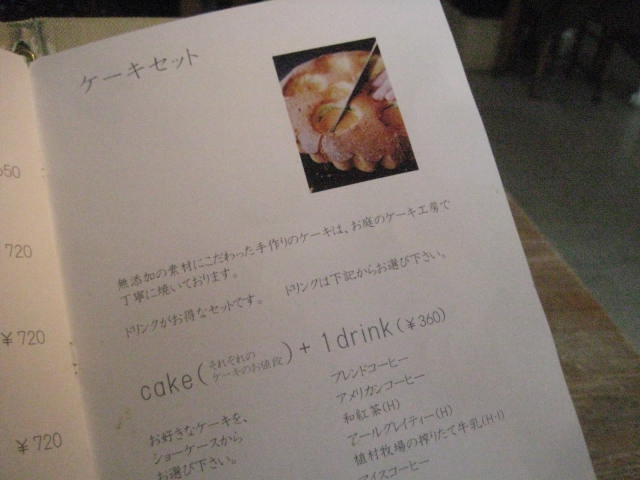 ケーキセット
無添加の素材にこだわった手作りのケーキは、お庭のケーキ工房で
丁寧に焼いております。
ドリンクがお得なセットです。 ドリンクは下記からお選び下さい。
cake(それぞれの
ケーキのお値段) + 1drink(¥360)
お好きなケーキを、
ショーケースから
お選び下さい。
ブレンドコーヒー
アメリカンコーヒー
和紅茶(H)
アールグレイティー(H)
植村牧場の搾りたて牛乳(H・I)
アイスコーヒー
50
720
¥720
¥720